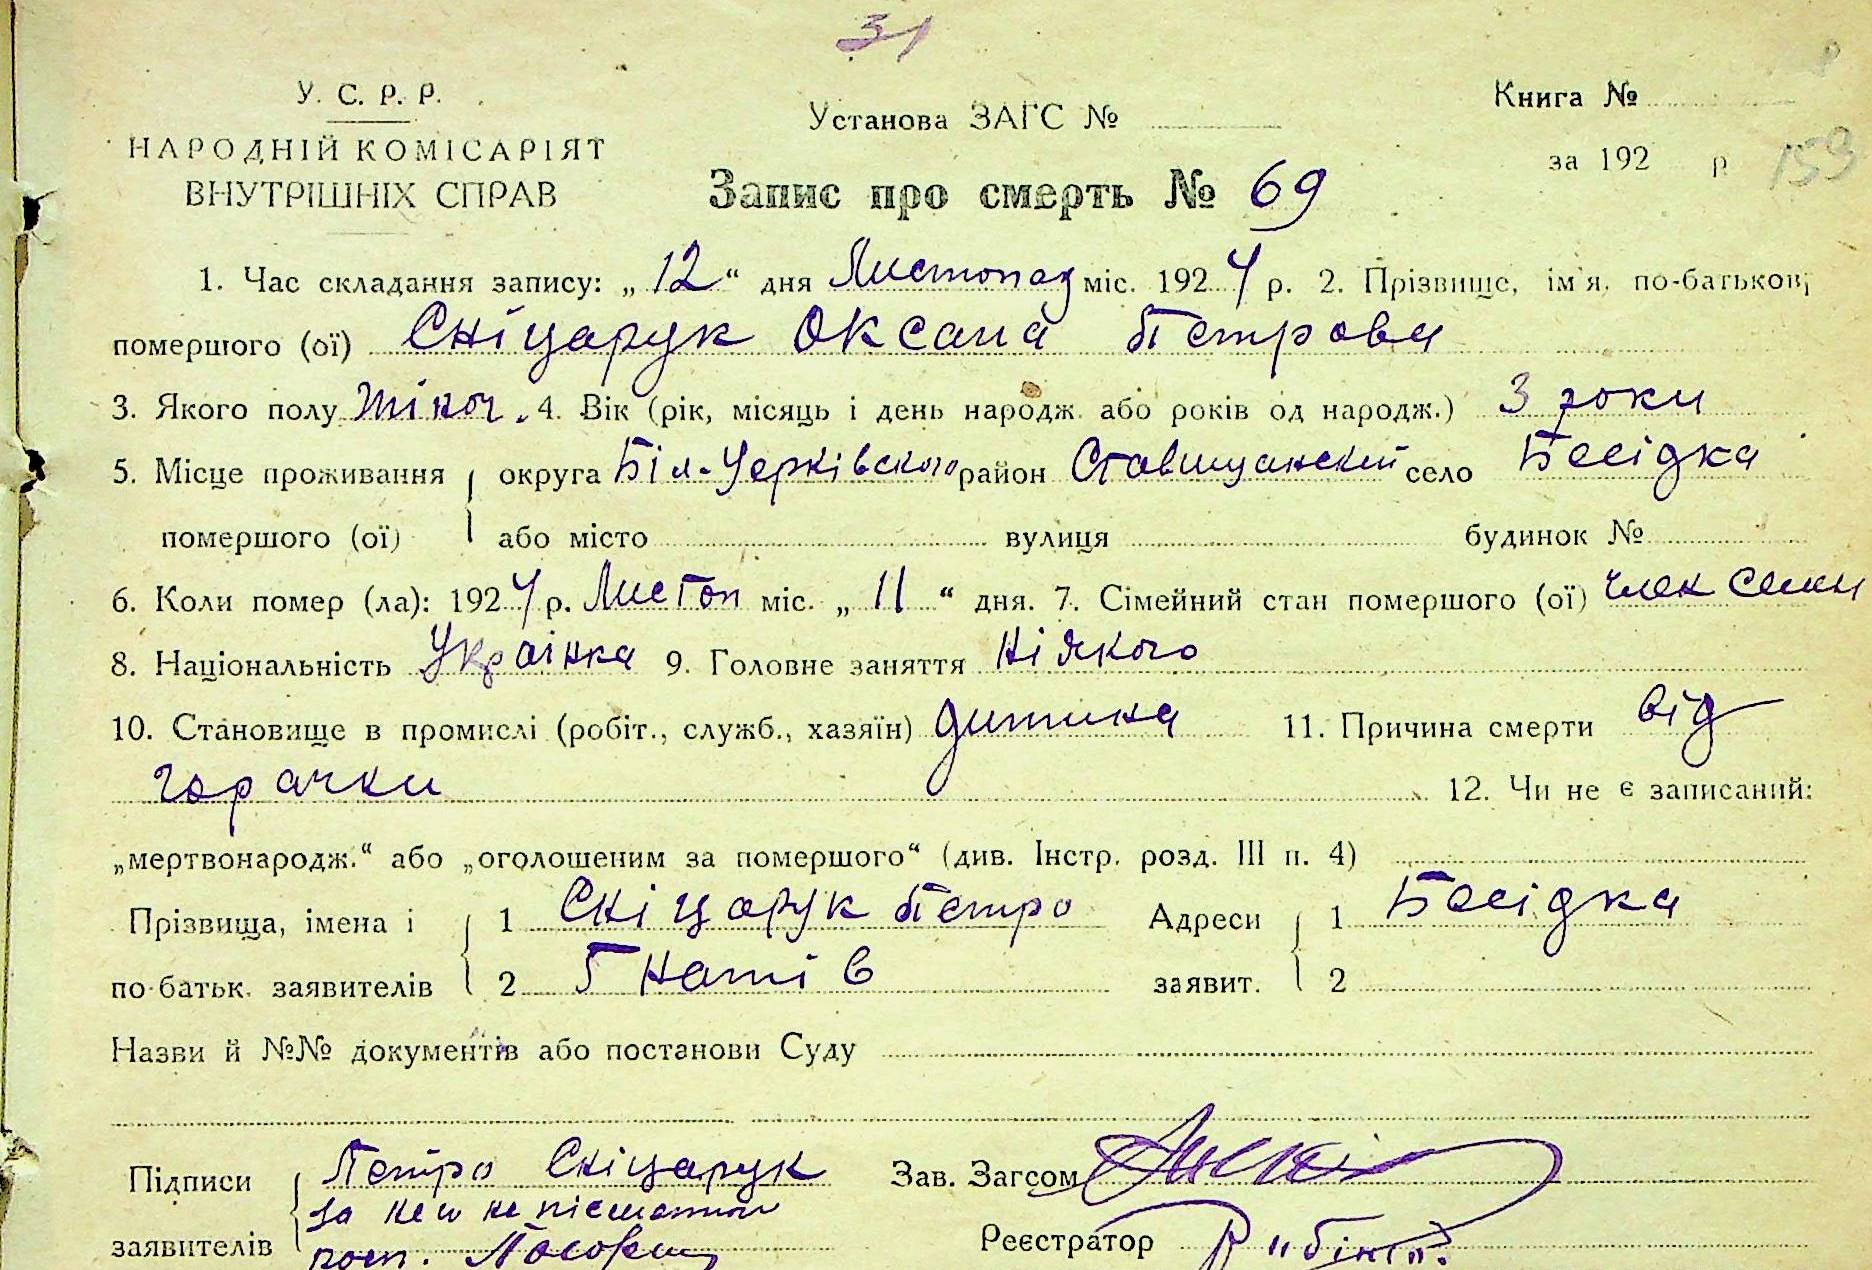 31
У. С. Р. Р.
НАРОДНІЙ КОМІСАРІЯТ
ВНУТРІШНІХ СПРАВ
Установа ЗАГС №
Книга №
за 192 р 159
Запис про смерть № 69
1. Час складання запису: „12“ дня Листопад міс. 1924 р. 2. Прізвище, ім'я, по-батькові
помершого (ої) Сніцарук Оксана Петрова
3. Якого полу жіноч. 4. Вік (рік, місяць і день народж. або років од народж.) 3 роки
5. Місце проживання округа Біл-Черківського район Ставищанский село Бесідка
помершого (ої) або місто вулиця будинок №
6. Коли помер (ла): 1924 р. Листоп міс. „11“ дня. 7. Сімейний стан помершого (ої) член семи
8. Національність Українка 9. Головне заняття Ніякого
10. Становище в промислі (робіт., служб., хазяїн) дитина 11. Причина смерти від
горачки 12. Чи не є записаний:
„мертвонародж.“ або „оголошеним за помершого“ (див. Інстр. розд. III п. 4)
Прізвища, імена і 1 Сніцарук Петро Адреси 1 Бесідка
по-батьк. заявителів 2 Гнатів заявит. 2
Назви й №№ документів або постанови Суду
Підписи Петро Сніцарук Зав. Загсом
за
заявителів Реєстратор